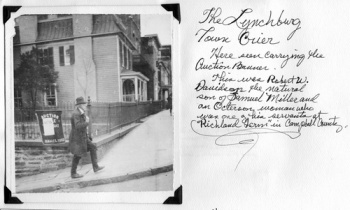 The Lynchburg
Town Crier
Here seen carrying the
Auction Banner.
This was Robert W.
Davidson, the natural
son of Samuel Miller and
an Octoroon, woman who
was one of his servants at
"Richland Farm" in Campbell County
AUCTION